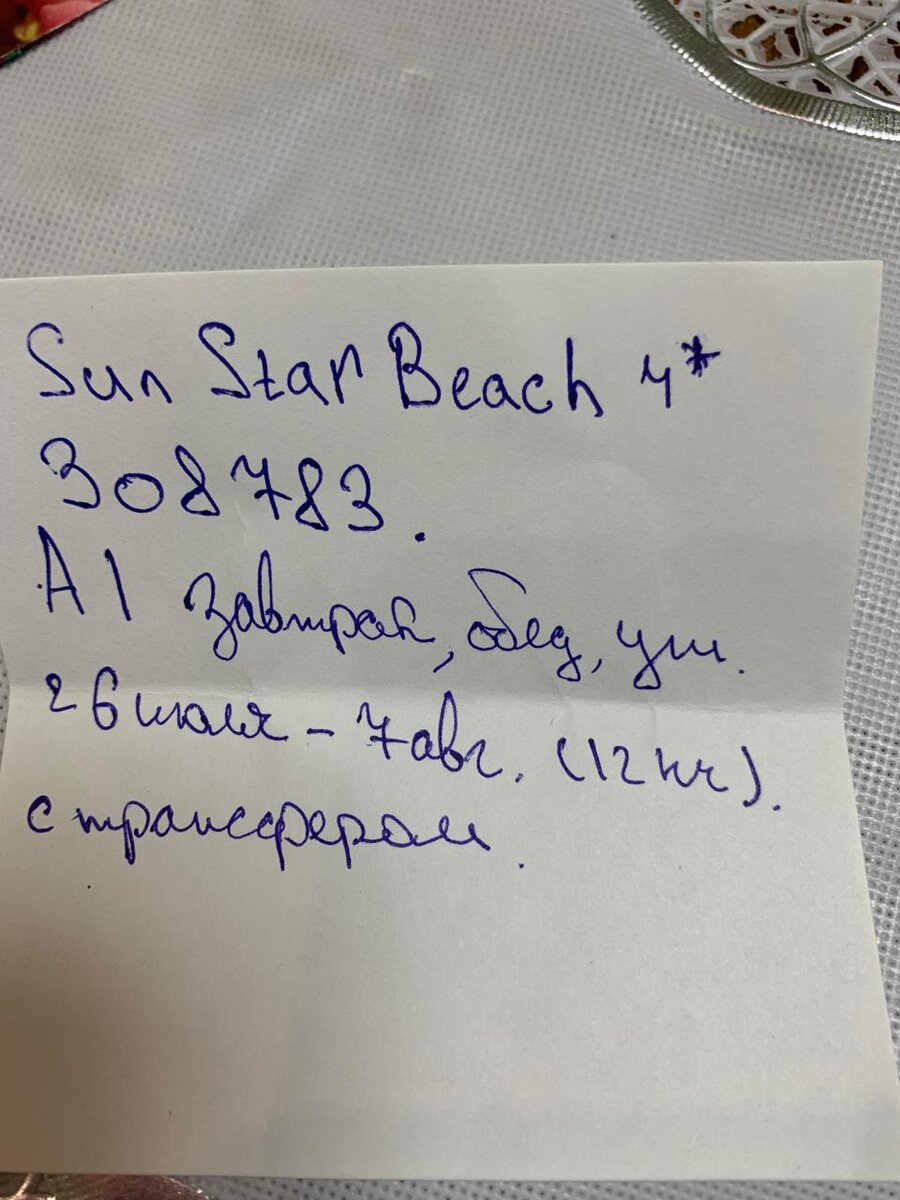 Sun Star Beach 4*
308783.
A1 завтрак, обед, уж.
26 июля - 7 авг. (12 нч).
с трансфером.